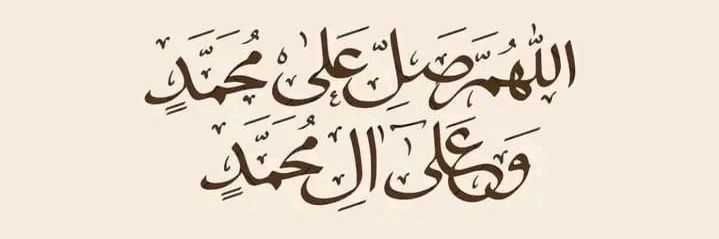 اللّٰهُمَّ صَلِّ عَلٰى مُحَمَّدٍ
وَعَلٰى اٰلِ مُحَمَّدٍ